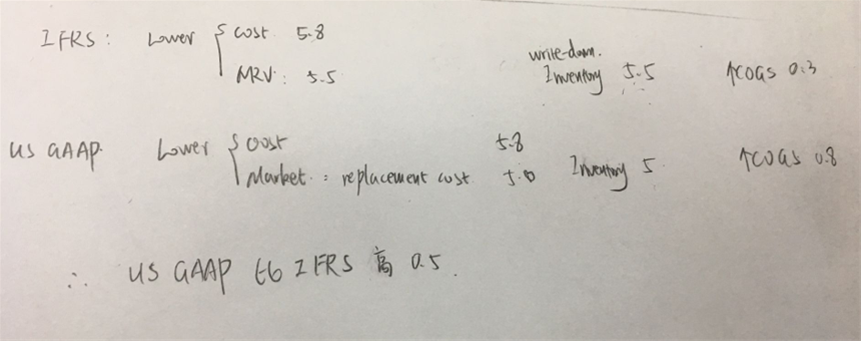 IFRS : Lower { cost 5.8
NRV : 5.5 write-down. Inventory 5.5 ↑COGS 0.3
US GAAP. Lower { cost 5.8
Market : replacement cost 5.0 Inventory 5 ↑COGS 0.8
∴ US GAAP 比 IFRS 高 0.5.